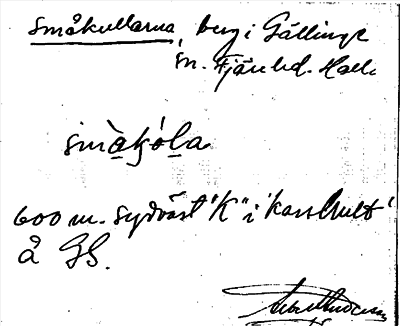 Småkullarna, berg i Gällinge
sn. Fjäre hd. Hall.
smàkóla
600 m. sydväst "K" i 'Karshult'
å GS.